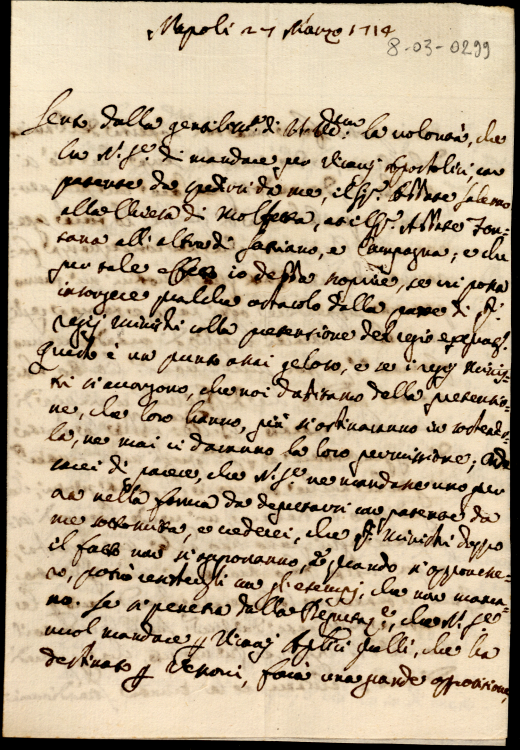 Napoli 27 Marzo 1714
8-03-0299
Sento dalla gentiliss.ª di V. Ill.ma la volontà, che
ha N. S.re di mandare per Vicarj Apostolici, con
patente da spedirsi da me, il Sig.r Abbate Salerno
alla Chiesa di Molfetta, et il Sig.r Abbate Fon-
tana all'altra di Satriano, e Campagna; e che
per tale effetto io debba scoprire, se vi possa
insorgere qualche ostacolo dalla parte di q.i
regij Ministri colla pretensione del regio exequat.r
Questo è un punto assai geloso, e se i regij Minis-
tri si accorgono, che noi dubitiamo della pretensio-
ne, che loro hanno, più si ostinaranno in sostener-
la, ne mai ci daranno la loro permissione; onde
sarei di parere, che N. S.re ne mandasse uno per
ora nella forma da deputarsi con patente da
me sottoscritta, e vederei, che q.i Ministri doppo
il fatto non si opporranno, e quando si opponesse-
ro, potrò con gli esempj, che non manca-
no. Se si penetra dalla Deputaz.e, che N. S.re
vuol mandare p Vicarj Aplici quelli, che ha
destinato p Vescovi, farà una grande opposizione,